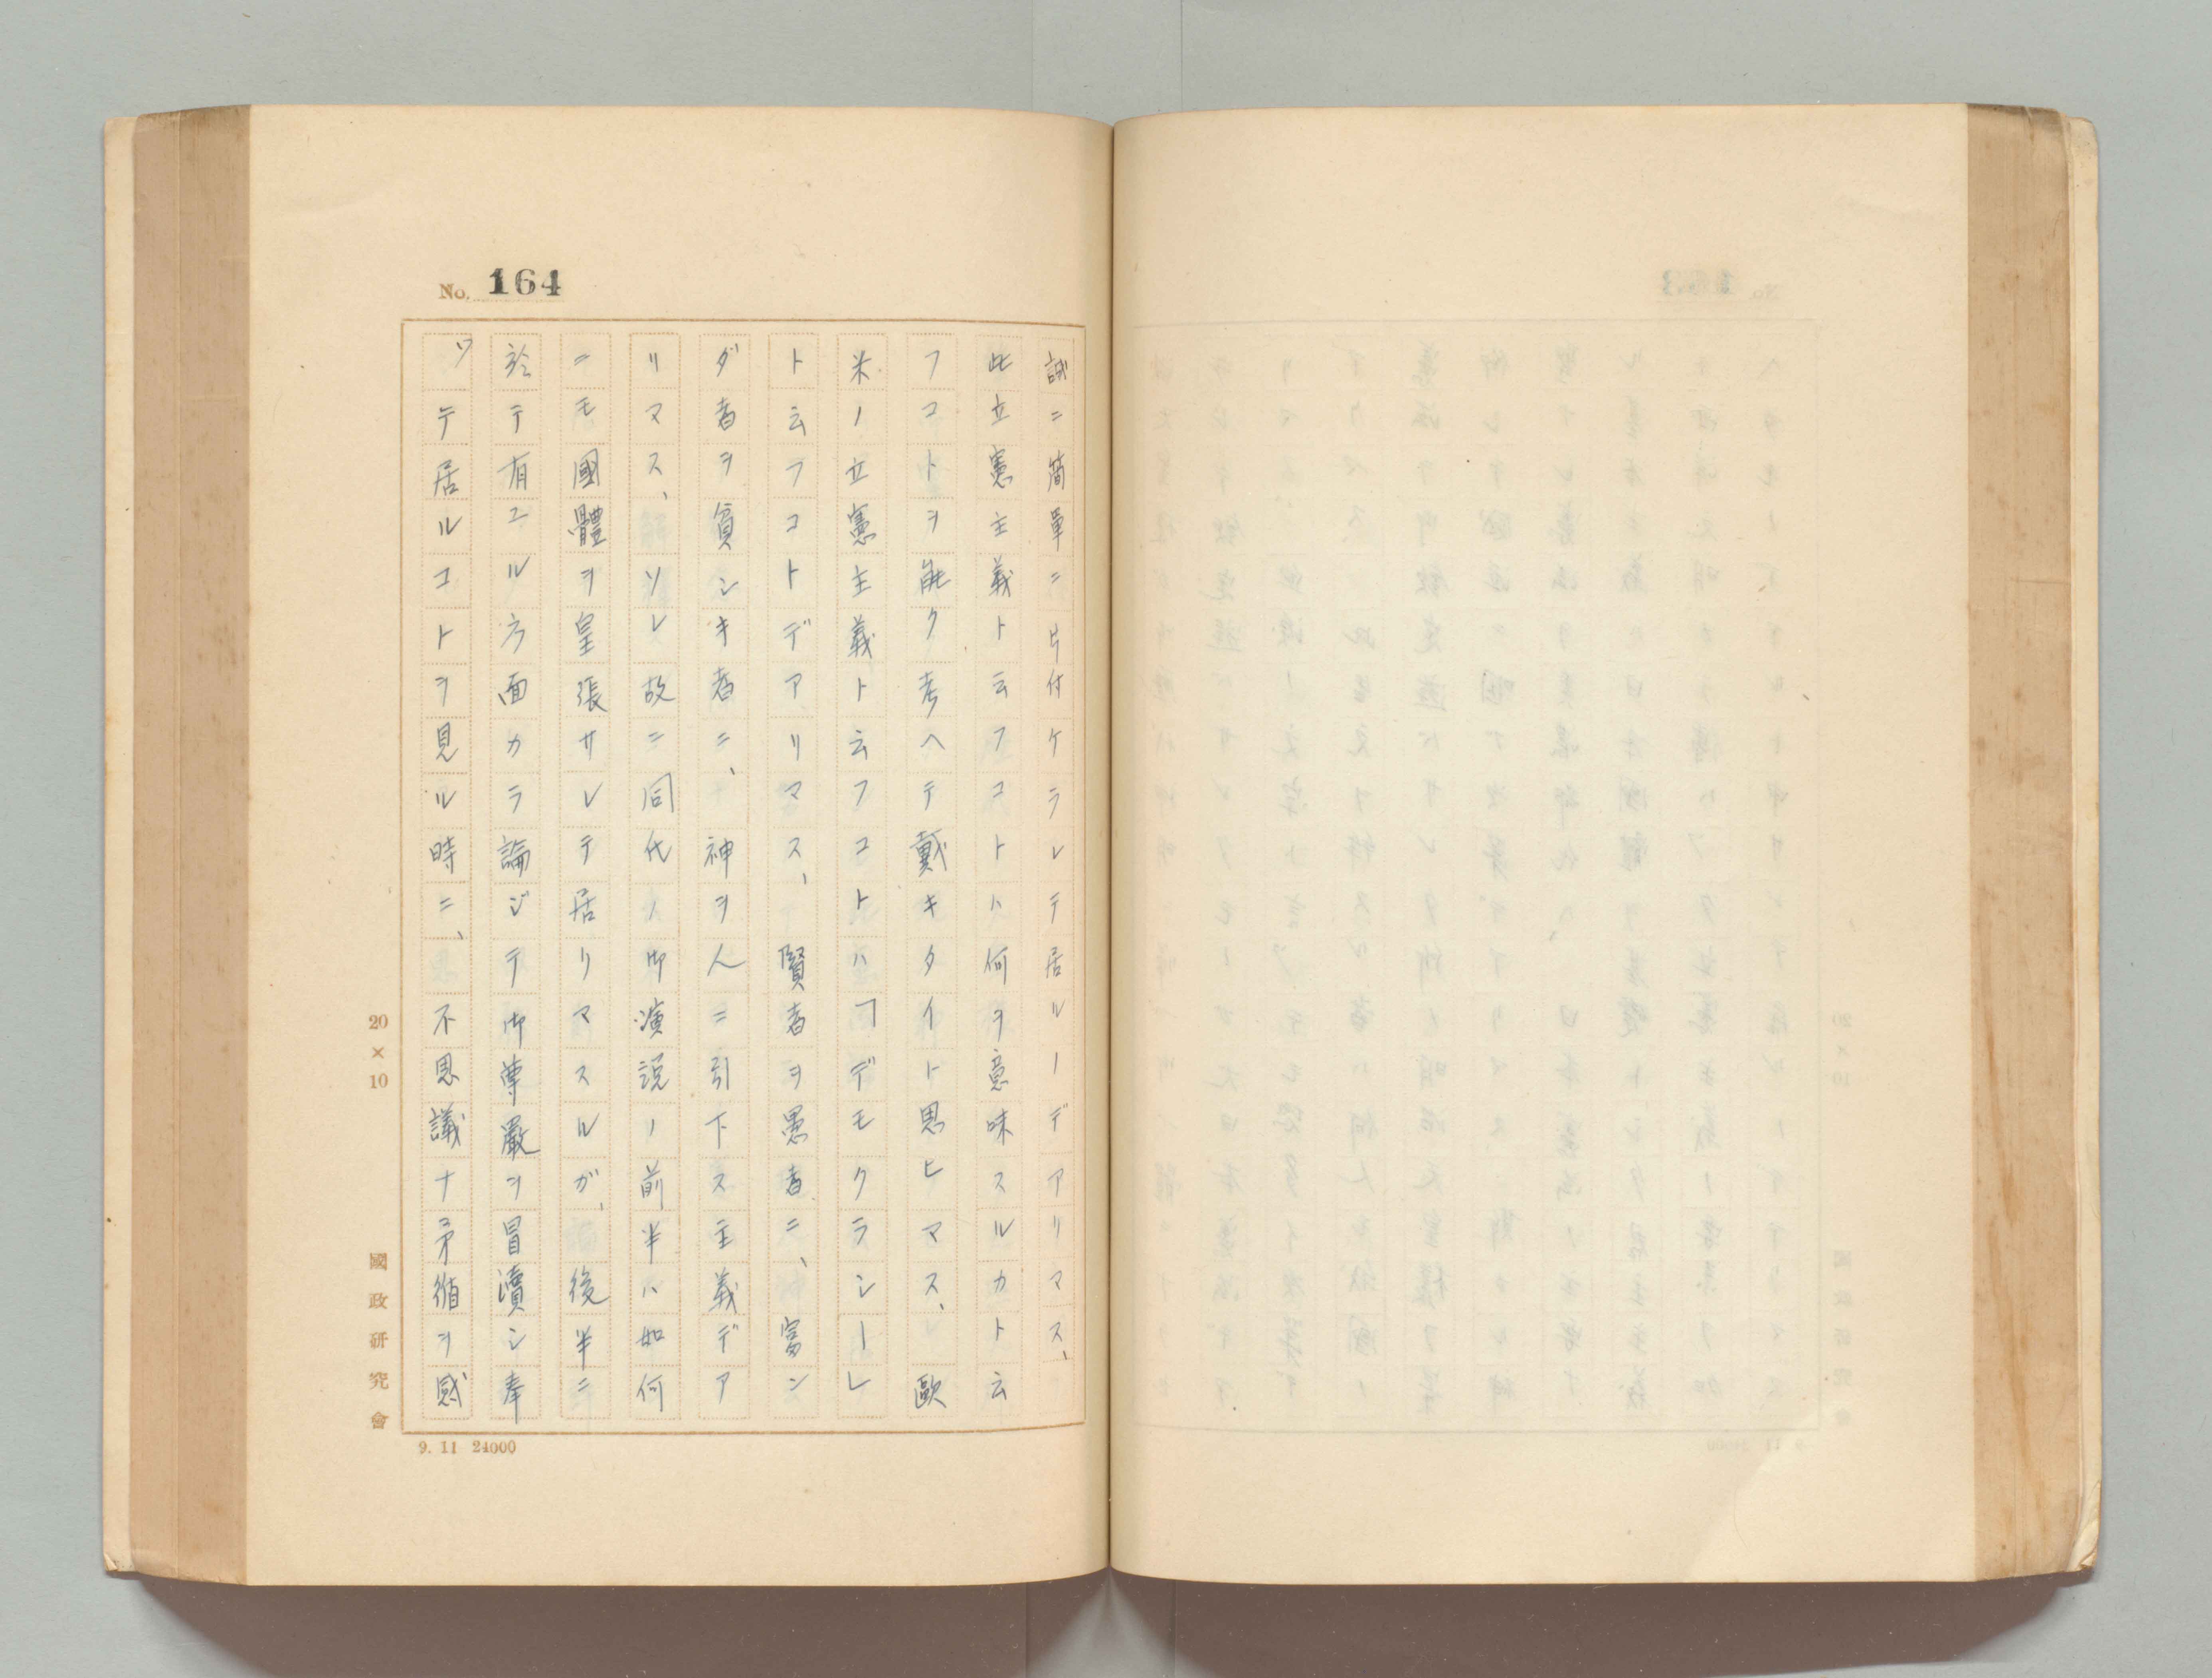 No. 164
誠ニ簡單ニ片付ケラレテ居ルノデアリマス、
此立憲主義ト云フコトハ何ヲ意味スルカト云
フコトヲ能ク考ヘテ戴キタイト思ヒマス、歐
米ノ立憲主義ト云フコトハ「デモクラシーレ
ト云フコトデアリマス、賢者ヲ愚者ニ、富ン
ダ者ヲ貧シキ者ニ、神ヲ人ニ引下ス主義デア
リマス、ソレ故ニ同代ノ御演説ノ前半ハ如何
ニモ國體ヲ皇張サレテ居リマスルガ、後半ニ
於テ有ユル方面カラ論ジテ御尊嚴ヲ冒瀆シ奉
ツテ居ルコトヲ見ル時ニ、不思議ナ矛循ヲ感
20×10
國政研究會
9.11 24000